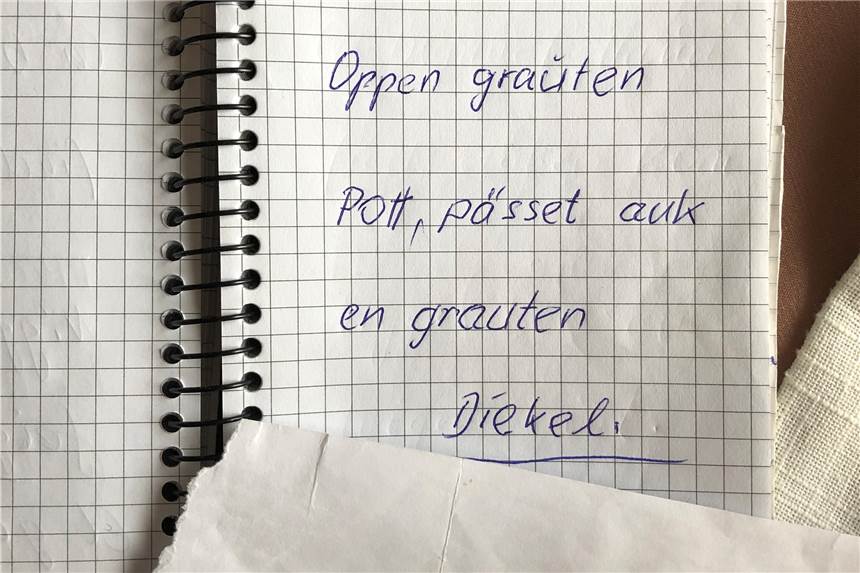 Oppen graŭten
Pott, pässet auk
en grauten
Diekel.